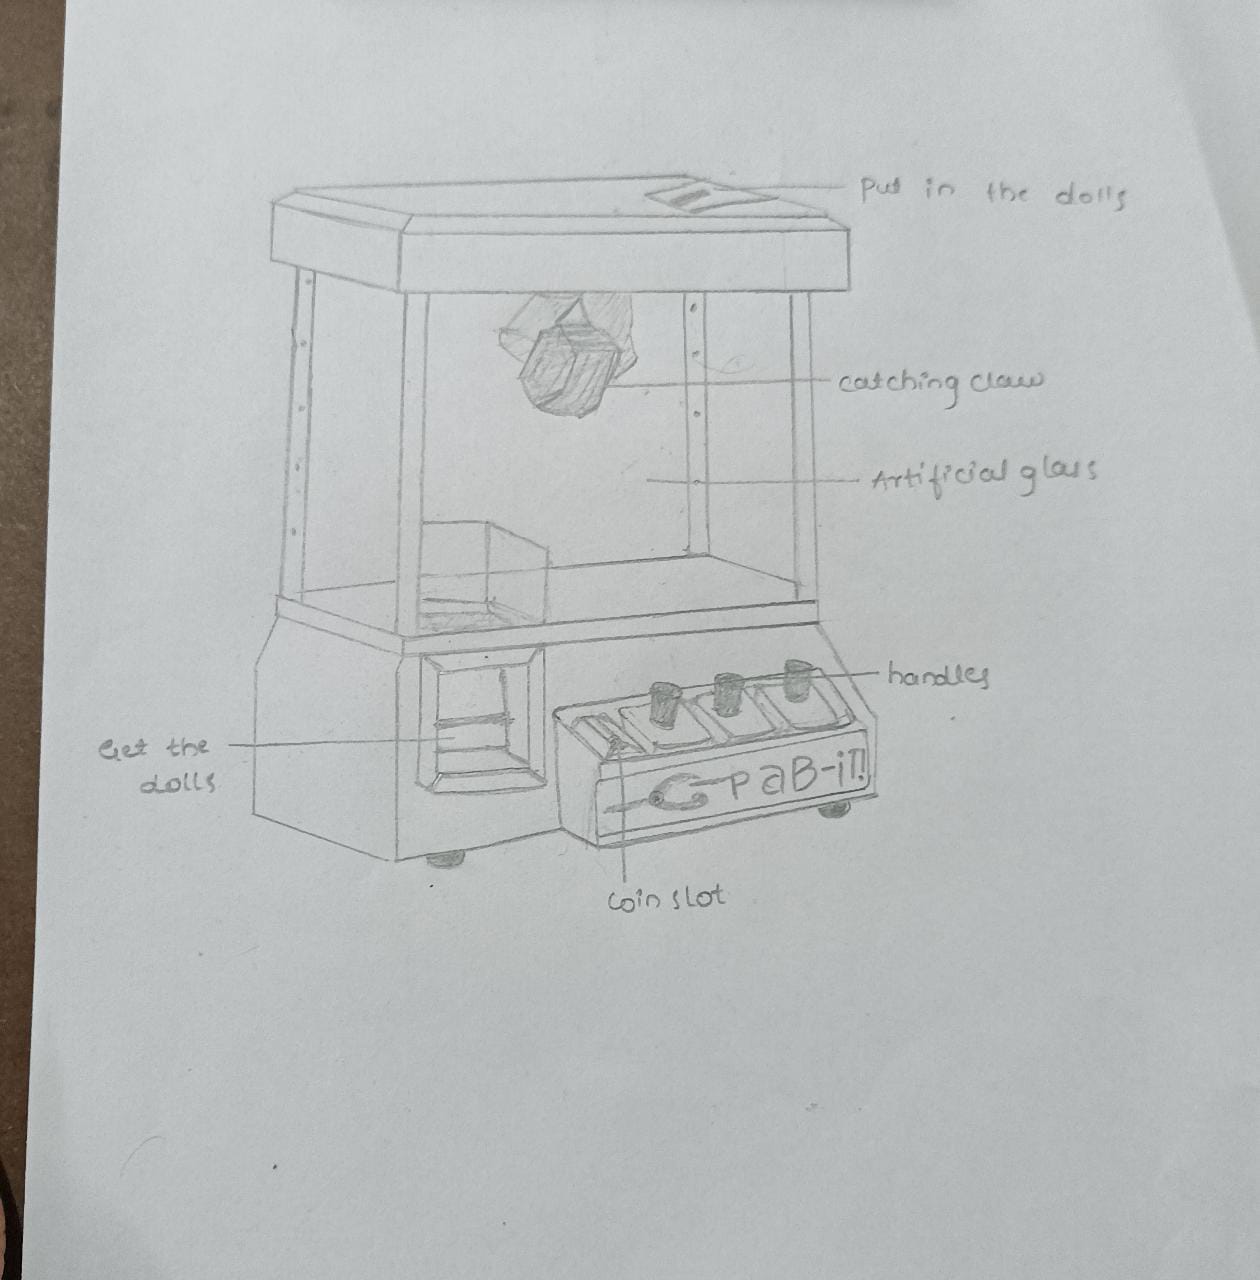 Put in the dolls
catching claw
Artificial glass
handles
Get the
dolls
GPaB-iT!
coin slot